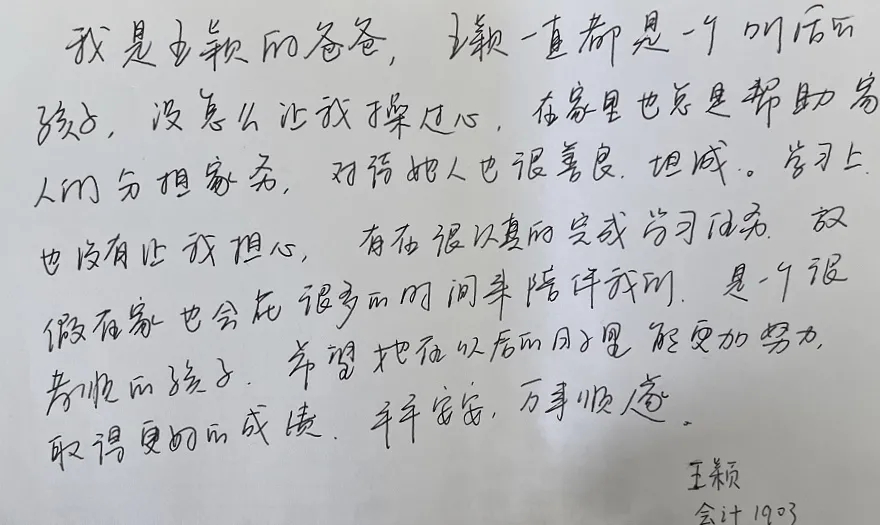 我是王颖的爸爸，王颖一直都是一个听话的
孩子，没怎么让我操过心，在家里也总是帮助家
人们分担家务，对待她人也很善良、坦诚。学习上
也没有让我担心，有在很认真的完成学习任务、放
假在家也会花很多的时间来陪伴我们、是一个很
孝顺的孩子、希望她在以后的日子里能更加努力，
取得更好的成绩、平平安安，万事顺遂。
王颖
会计1903